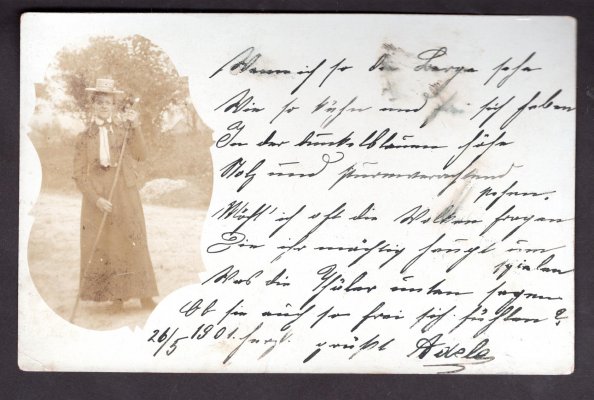 Wenn ich so die Berge sehe
Wie so kühn und frei sich heben
In der dunkelblauen Höhe
Stolz und sturmverachtend
stehen.
Möcht' ich oft die Wolken fragen
Die ihr mächtig Haupt um
spielen
Was die Thäler unten sagen
Ob sie auch so frei sich fühlen?
26/5 1901. herzl. grüßt Adele